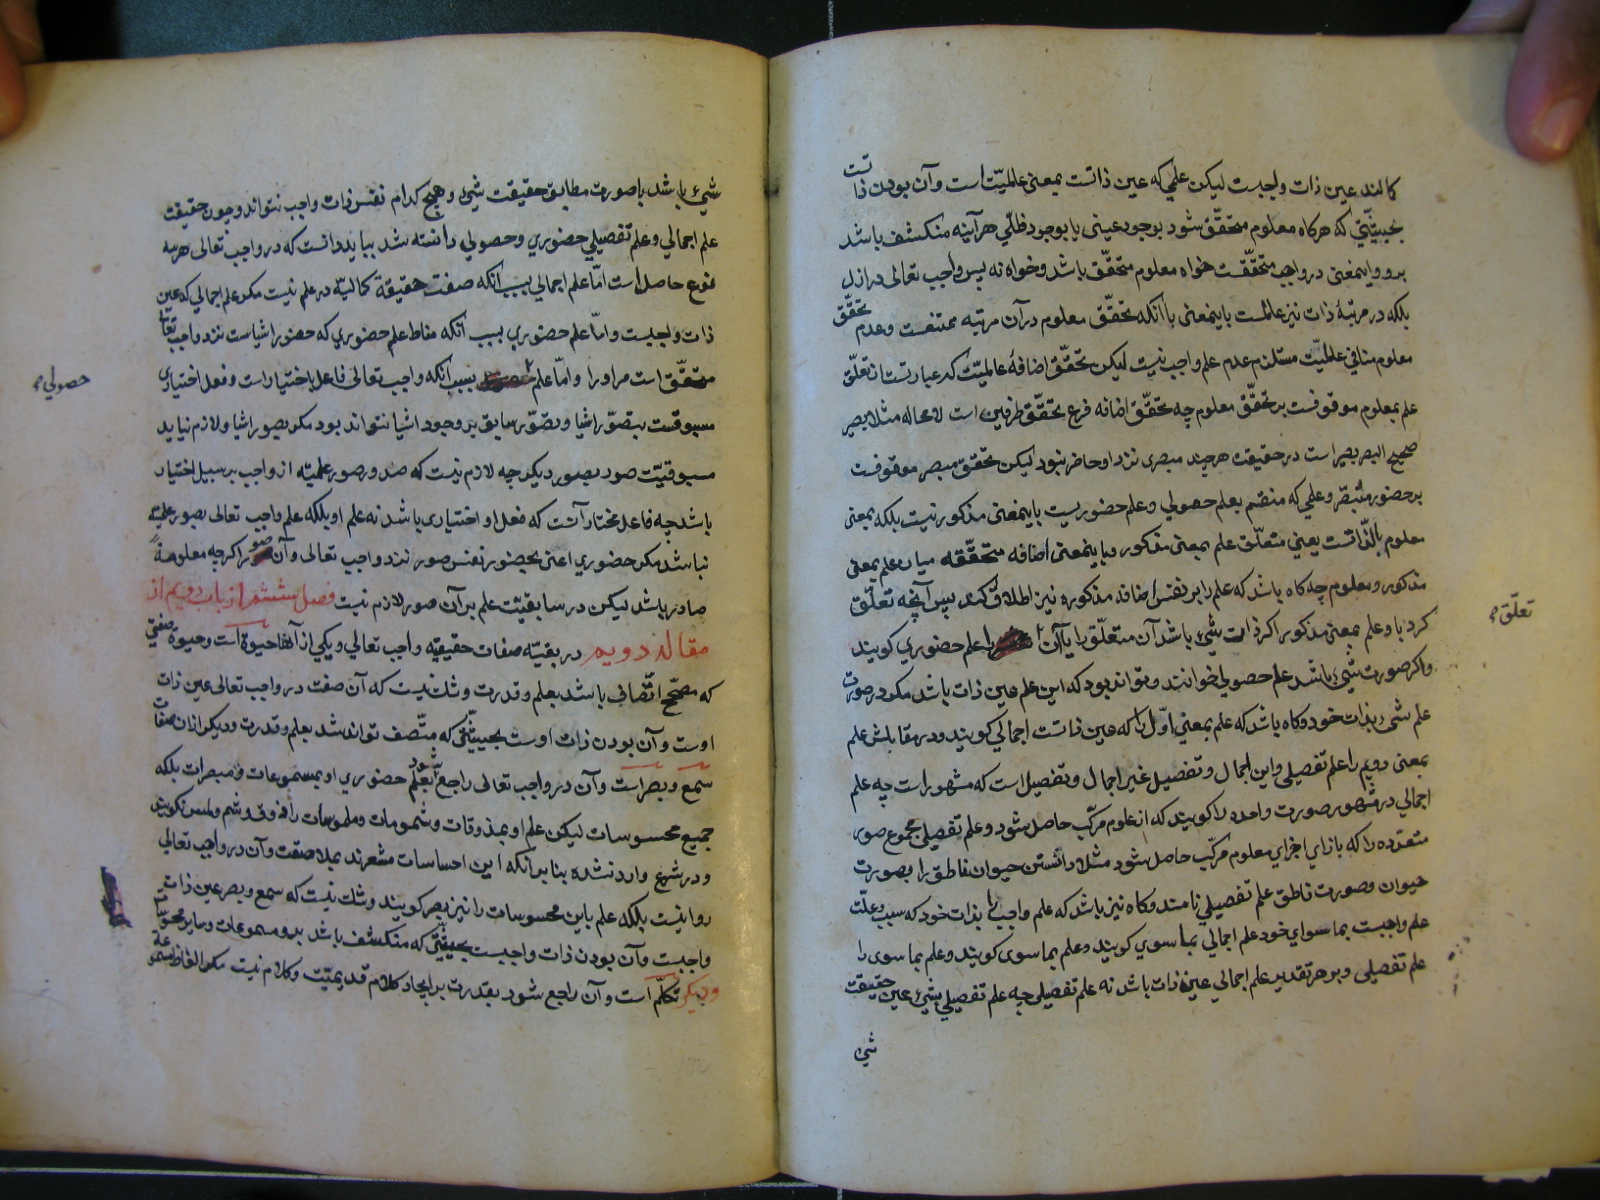 کمالند عین ذات واجبست لیکن علمی که عین ذاتست بمعنی عالمیّت است و آن بودن ذاتست
بحیثیّتی که هرکاه معلوم متحقّق شود بوجود عینی یا بوجود ظلّی هرآینه منکشف باشد
برو و اینمعنی در واجب متحقّقست خواه معلوم متحقّق باشد و خواه نه پس واجب تعالی در ازل
بلکه در مرتبهٔ ذات نیز عالمست باینمعنی با آنکه تحقّق معلوم در آن مرتبه ممتنعست و عدم تحقّق
معلوم منافی عالمیّت مستلزم عدم علم واجب نیست لیکن تحقّق اضافهٔ عالمیّت که عبارتست از تعلّق
علم بمعلوم موقوفست بر تحقّق معلوم چه تحقّق اضافه فرع تحقّق طرفین است لامحاله مثلا بصیر
صحیح البصر بصیر است در حقیقت هرچند مبصری نزد او حاضر نبود لیکن تحقّق مبصر موقوفست
بر حضور متبصّر و علمی که منقسم بعلم حصولی و علم حضوریست باینمعنی مذکور نیست بلکه بمعنی
معلوم بالذّاتست یعنی متعلّق علم بمعنی مذکور و یا بنمعنی اضافه متحقّقه میان علم بمعنی
مذکور و معلوم چه کاه باشد که علم را بر نفس اضافه مذکوره نیز اطلاق کنند پس آنچه تعلّق
کرد باو علم بمعنی مذکور اکر ذات شیء باشد آن متعلّق را یا آن تعلّق را علم حضوری کویند
و اکر صورت شیء باشد علم حصولی خوانند و تواند بود که این علم عین ذات باشد مکر در صورت
علم شیء بذات خود و کاه باشد که علم بمعنی اوّل را که عین ذاتست اجمالی کویند و در مقابلش علم
بمعنی دویم را علم تفصیلی و این اجمال و تفصیل غیر اجمال و تفصیل است که مشهور است چه علم
اجمالی در مشهور صورت واحده را کویند که از علوم مرکّب حاصل شود و علم تفصیلی مجموع صور
متعدّده را که بازای اجزای معلوم مرکّب حاصل شود مثلا دانستن حیوان ناطق را بصورت
حیوان و صورت ناطق علم تفصیلی نامند و کاه نیز باشد که علم واجب را بذات خود که سبب و علّت
علم واجبست بماسوای خود علم اجمالی بماسوی کویند و علم بماسوی کویند و علم بماسوی را
علم تفصیلی و بر هر تقدیر علم اجمالی عین ذات باشد نه علم تفصیلی چه علم تفصیلی بشیء عین حقیقت
شیء
تعلّق
شیء باشد یا صورت مطابق حقیقت شیء و هیچ کدام نفس ذات واجب نتواند و چون حقیقت
علم اجمالی و علم تفصیلی حضوری و حصولی دانسته شد بباید دانست که در واجب تعالی هر سه
نوع حاصل است امّا علم اجمالی بسبب آنکه صفت حقیقهٔ کمالیّه در علم نیست مکر علم اجمالی که عین
ذات واجبست و امّا علم حضوری بسبب آنکه مناط علم حضوری که حضور اشیاست نزد واجب تعالی
متحقّق است مر او را و امّا علم بسبب آنکه واجب تعالی فاعل باختیار است و فعل اختیاری
مسبوقست بتصوّر اشیا و تصوّر سابق بر وجود اشیا نتواند بود مکر بصور اشیا و لازم نیاید
مسبوقیّت صور بصور دیکر چه لازم نیست که صدور صور علمیّه از واجب بر سبیل اختیار
باشد چه فاعل مختار آنست که فعل او اختیاری باشد نه علم او بلکه علم واجب تعالی بصور علمیّه
نباشد مکر حضوری اعنی بحضور نفس صور نزد واجب تعالی و آن صور اکرچه معلومهٔ
صادر باشد لیکن در سابقیّت علم بر آن صور لازم نیست فصل ششم از باب دویم از
مقاله دویم در بقیّه صفات حقیقیه واجب تعالی و یکی از آنها حیوة است و حیوة صفتی
که مصحّح اتّصافی باشد بعلم و قدرت و شک نیست که آن صفت در واجب تعالی عین ذات
اوست و آن بودن ذات اوست بحیثیّتی که متّصف تواند شد بعلم و قدرت و دیکر از آن صفات
سمع و بصر است و آن در واجب تعالی راجع شود بعلم حضوری او بمسموعات و مبصرات بلکه
جمیع محسوسات لیکن علم او بمذوقات و شمومات و ملموسات را ذوق و شم و لمس نکویند
و در شرع وارد نشده بنابر آنکه این احساسات مشعرند بملاصقت و آن در واجب تعالی
روا نیست بلکه علم باین محسوسات را نیز بصر کویند و شک نیست که سمع و بصر عین ذات
واجبست و آن بودن ذات واجبست بحیثیّتی که منکشف باشد برو مسموعات و سایر محسوسات
و دیکر تکلّم است و آن راجع شود بقدرت بر ایجاد کلام قدیمیّت و کلام نیست مکر الفاظ مسموعة
حصولی